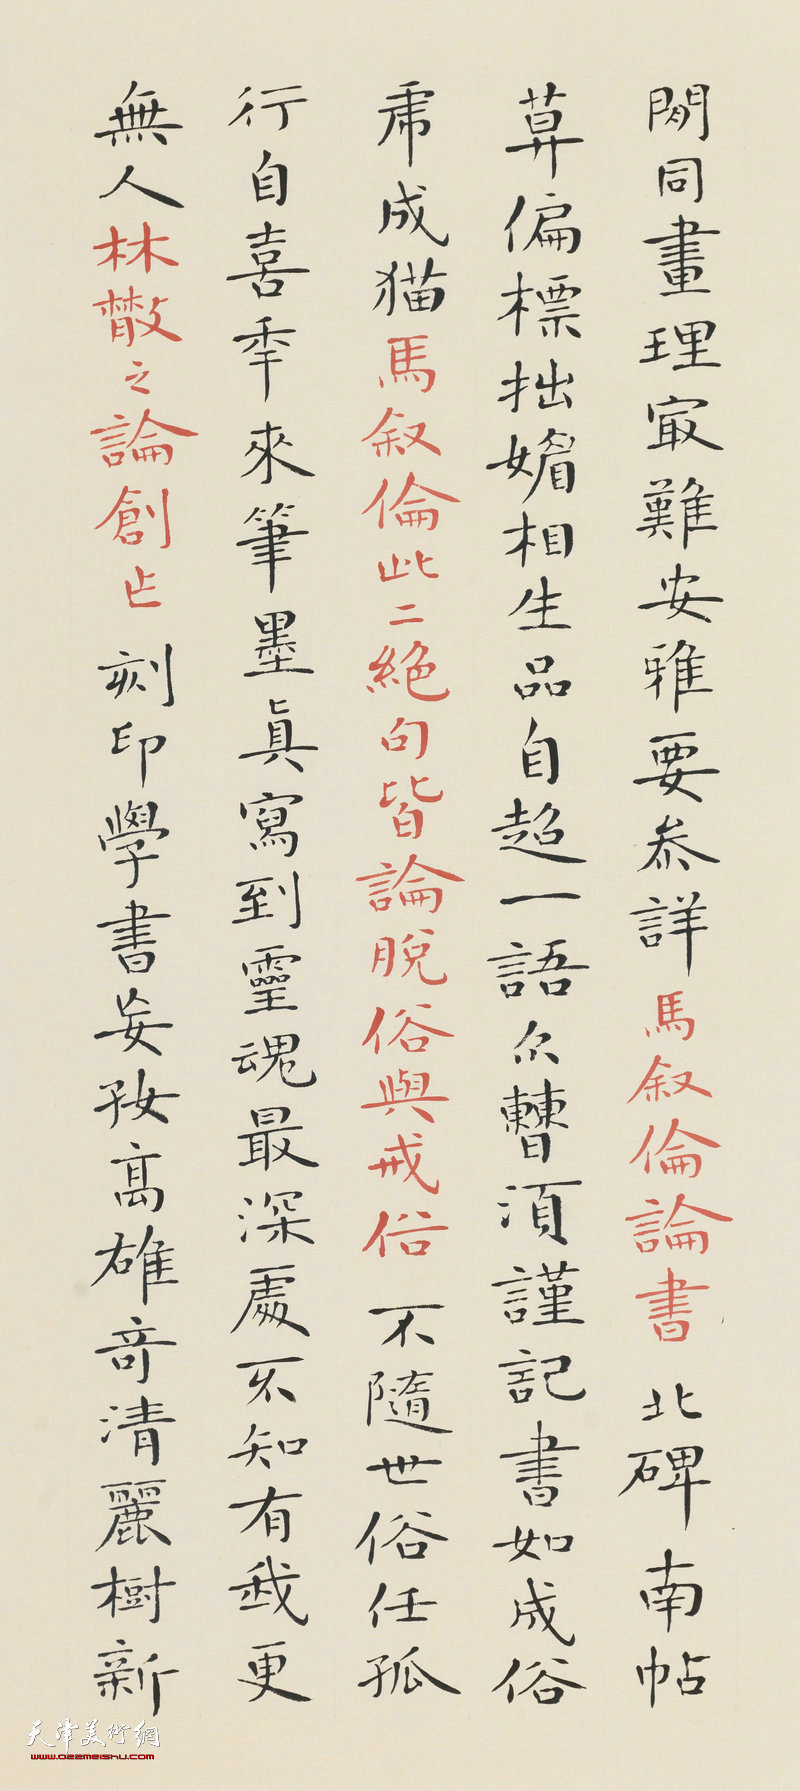 閒同畫理寂難安雅要叅詳馬叙倫論書北碑南帖
莫偏標拙媚相生品自超一語尒曹須謹記書如成俗
虎成猫馬叙倫此二絕句皆論脫俗與戒俗不隨世俗任孤
行自喜年來筆墨真寫到靈魂最深處不知有我更
無人林散之論創作刻印學書妄孜高雄奇清麗樹新
天津美術網
www.022meishu.com